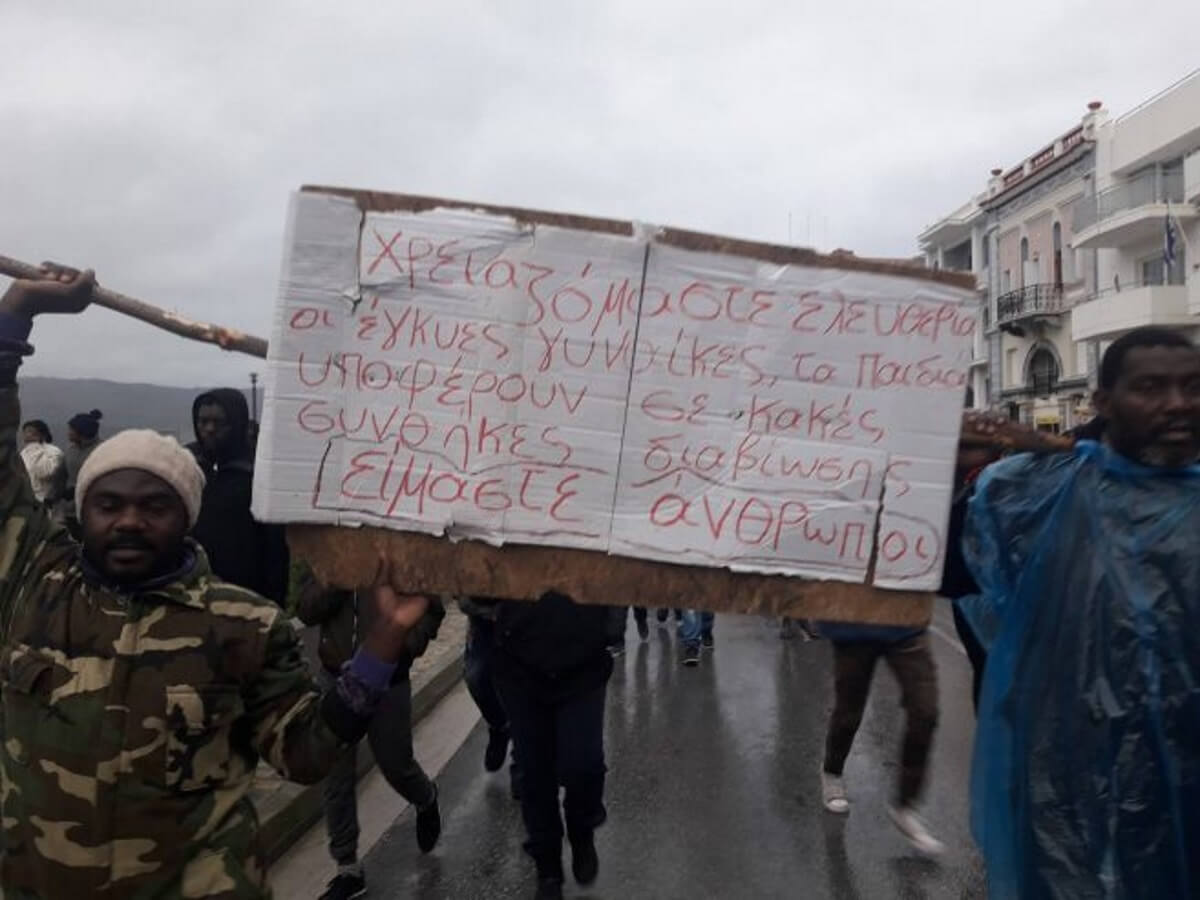 Χρειαζόμαστε ελευθερία
οι έγκυες γυναίκες, τα παιδιά
υποφέρουν σε κακές
συνθήκες διαβίωσης
Είμαστε άνθρωποι